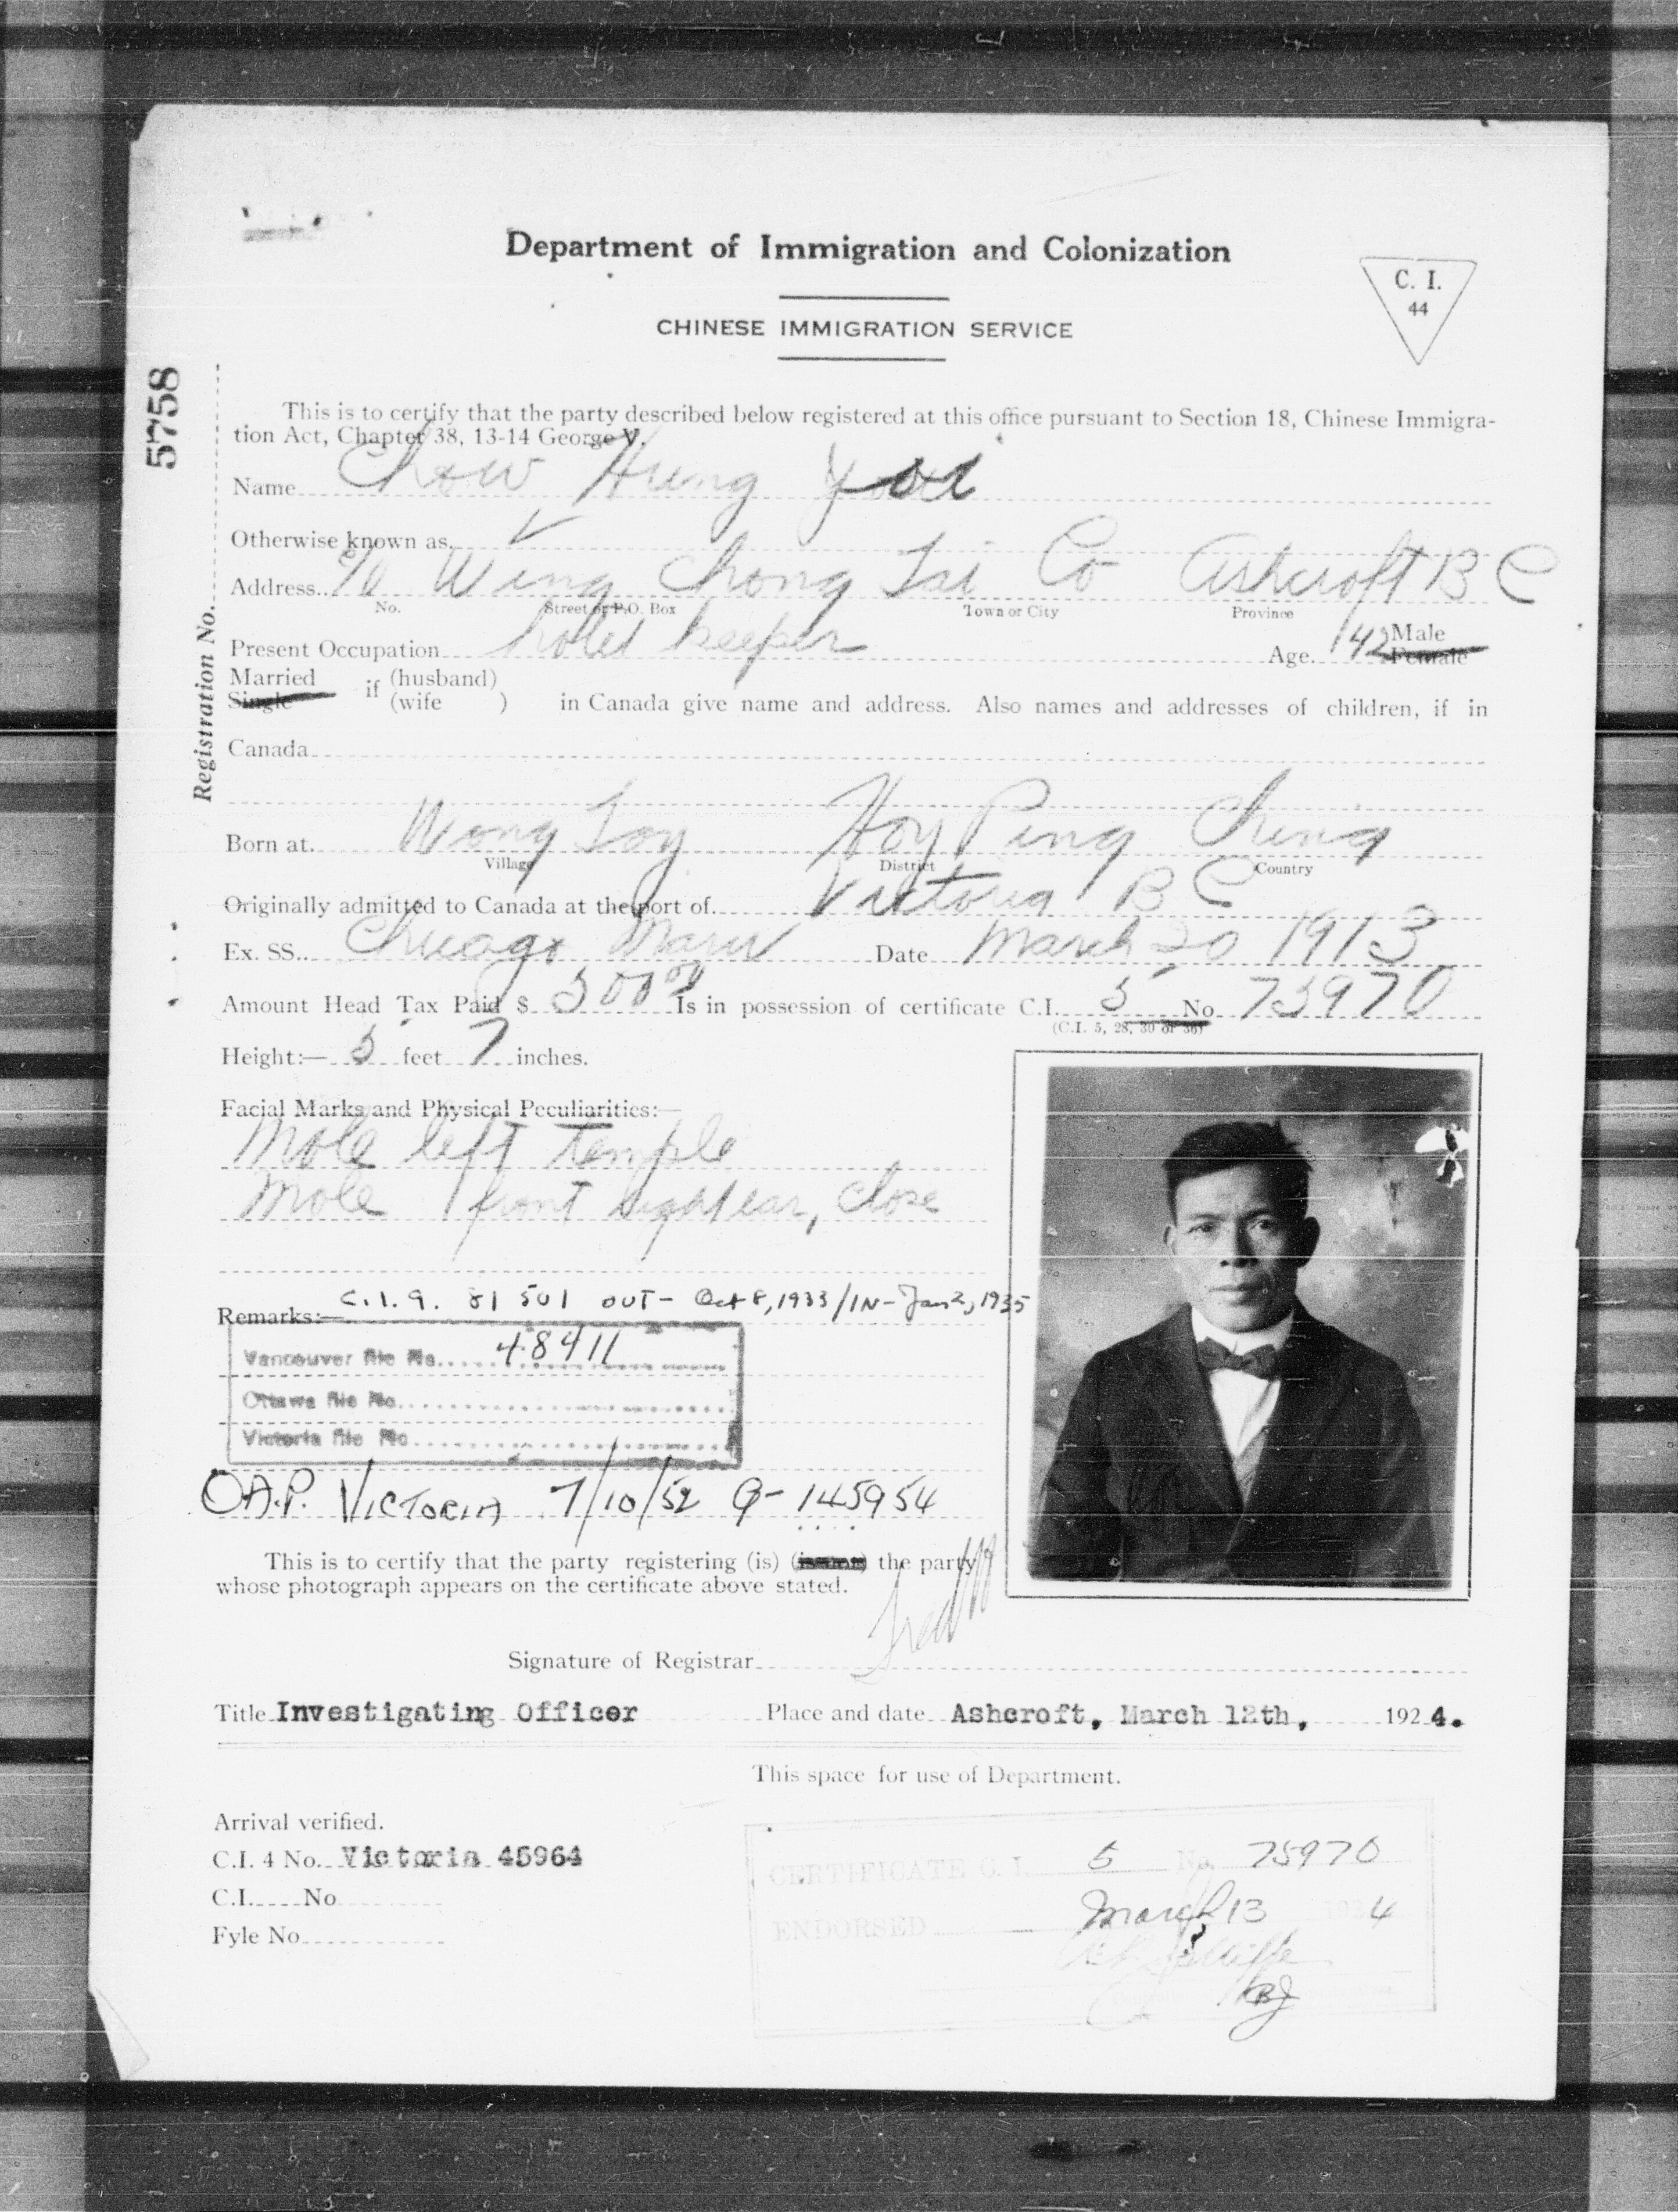 Department of Immigration and Colonization
C. I.
44
CHINESE IMMIGRATION SERVICE
5758
Registration No.
This is to certify that the party described below registered at this office pursuant to Section 18, Chinese Immigra-
tion Act, Chapter 38, 13-14 George V.
Name Chow Hung
Otherwise known as
Address c/o Wing Chong Tai Co Ashcroft B C
No. Street or P.O. Box Town or City Province
Present Occupation hotel keeper Age 42 Male Female
Married
Single if (husband)
(wife ) in Canada give name and address. Also names and addresses of children, if in
Canada
Born at Wong Toy Hoy Ping China
Village District Country
Originally admitted to Canada at the port of Victoria B C
Ex. SS. Chicago Maru Date March 20 1913
Amount Head Tax Paid $ 500 00 Is in possession of certificate C.I. 5 No 75970
(C.I. 5, 28, 30 or 36)
Height:— 5 feet 7 inches.
Facial Marks and Physical Peculiarities:—
Mole left temple
Mole front right ear, close
Remarks:— C.I.9. 81501 OUT- Oct 8, 1933/IN- Jan 2, 1935
Vancouver file No. 48411
Ottawa file No.
Victoria file No.
O.A.P. VICTORIA 7/10/52 9-145954
This is to certify that the party registering (is) (is not) the party
whose photograph appears on the certificate above stated.
Signature of Registrar
Title Investigating Officer Place and date Ashcroft, March 12th, 1924.
This space for use of Department.
Arrival verified.
C.I. 4 No. Victoria 45964
C.I. No
Fyle No
CERTIFICATE C. I. 5 No. 75970
ENDORSED March 13 1924